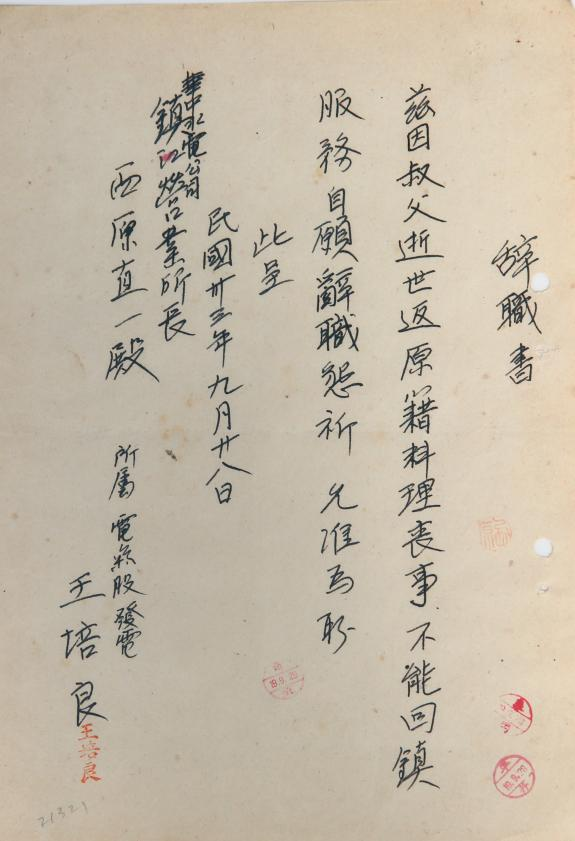 辞職書
茲因叔父逝世返原籍料理喪事不能回鎮
服務自願辭職懇祈 允准為盼
此呈
民國卅三年九月廿八日
華中水電公司
鎮江營業所長
西原直一殿
所屬 電氣股發電
王培良
王培良
19.9.29
19.9.29
21321